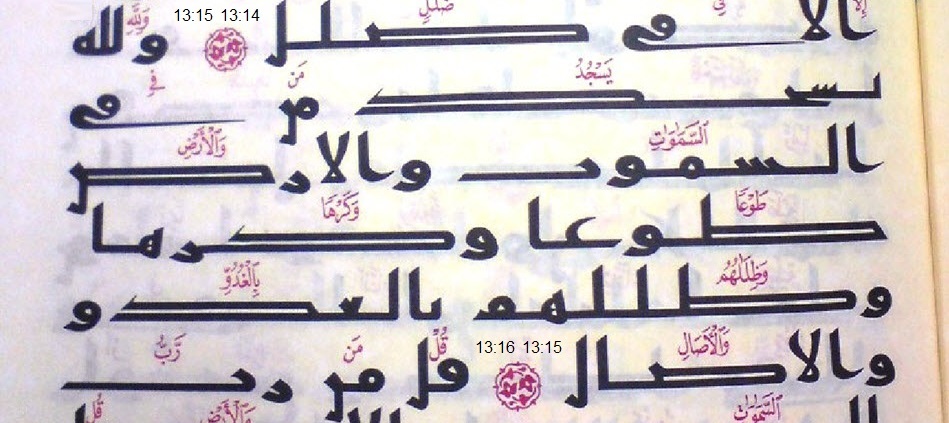 إِلَّا فِي ضَلَٰلٍ وَلِلَّهِ
الا في ضلل 13:15 13:14 ولله
يَسْجُدُ مَن فِي
يسجد من في
السَّمَٰوَٰتِ وَالْأَرْضِ
السموت والارض
طَوْعًا وَكَرْهًا
طوعا وكرها
وَظِلَٰلُهُم بِالْغُدُوِّ
وظللهم بالغدو
وَالْآصَالِ 13:16 13:15 قُلْ مَن رَّبُّ
والاصال قل من رب
السَّمَٰوَٰتِ وَالْأَرْضِ قُلِ